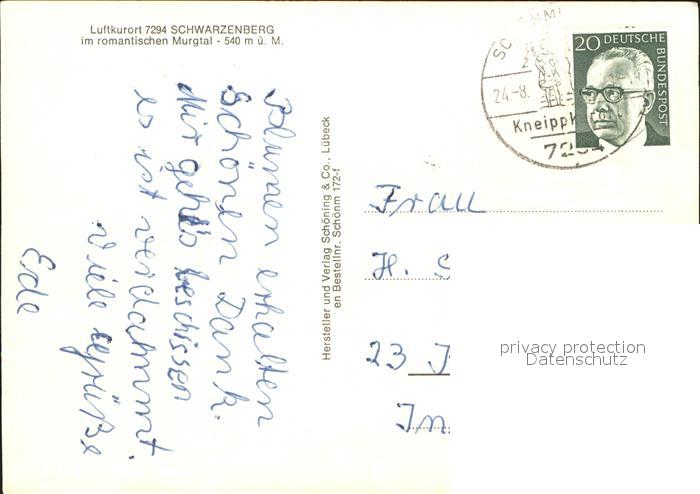 Luftkurort 7294 SCHWARZENBERG
im romantischen Murgtal - 540 m ü. M.
Blumen erhalten
Schönen Dank.
Mir geht's beschissen
es ist verdammt.
Viele Grüße
Ede
Hersteller und Verlag Schöning & Co., Lübeck
en Bestellnr. Schönm 172-f
24.-8.
Kneipp
20 DEUTSCHE
BUNDESPOST
Frau
H. S
23
privacy protection
Datenschutz